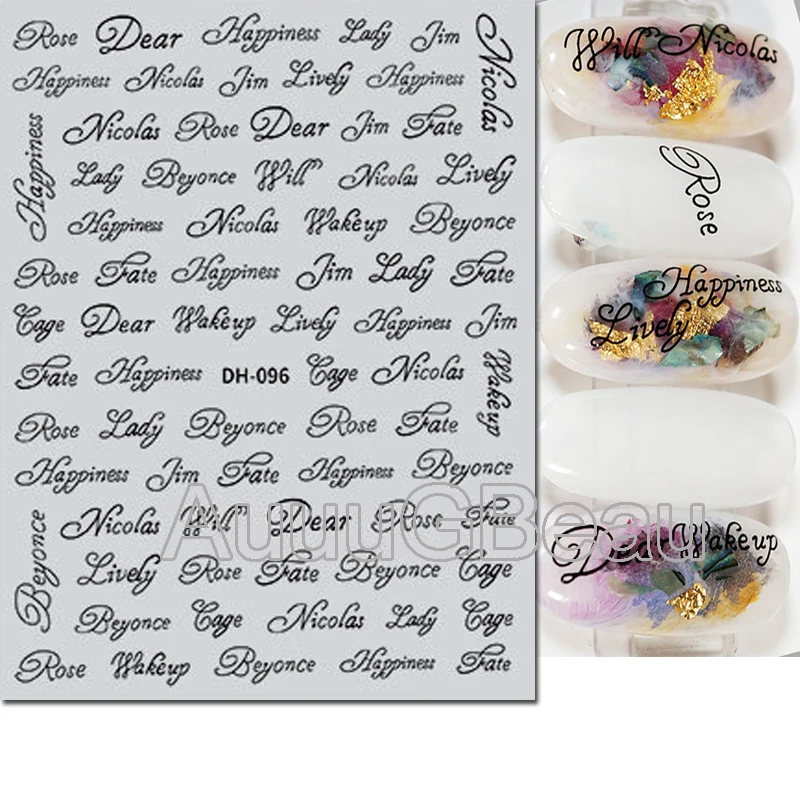 Rose Dear Happiness Lady Jim
Nicolas
Happiness Nicolas Jim Lively Happiness
Happiness
Nicolas Rose Dear Jim Fate
Lady Beyonce Will Nicolas Lively
Happiness Nicolas Wakeup Beyonce
Rose Fate Happiness Jim Lady Fate
Cage Dear Wakeup Lively Happiness Jim
Fate Happiness DH-096 Cage Nicolas
Wakeup
Rose Lady Beyonce Rose Fate
Happiness Jim Fate Happiness Beyonce
Beyonce
Nicolas Will Dear Rose Fate
Lively Rose Fate Beyonce Cage
Beyonce Cage Nicolas Lady Cage
Rose Wakeup Beyonce Happiness Fate
Will Nicolas
Rose
Happiness
Lively
Dear Wakeup
AuuuGBeau